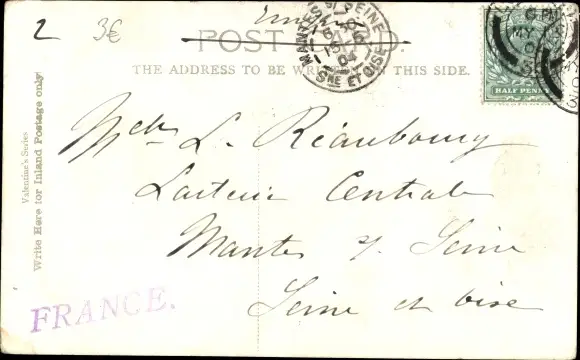 2 3€
POST CARD
THE ADDRESS TO BE WRITTEN ON THIS SIDE.
MANTES S/ SEINE
SNE ET OISE
04
HALF PENNY
Valentine's Series
Write Here for Inland Postage only
L. Réaubourg
Laiterie Centrale
Mantes s/ Seine
Seine et Oise
FRANCE.